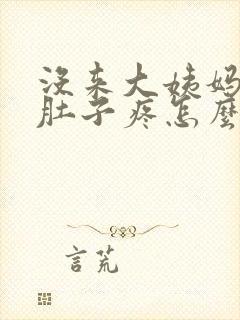 没来大姨妈
肚子疼怎麼
言荒